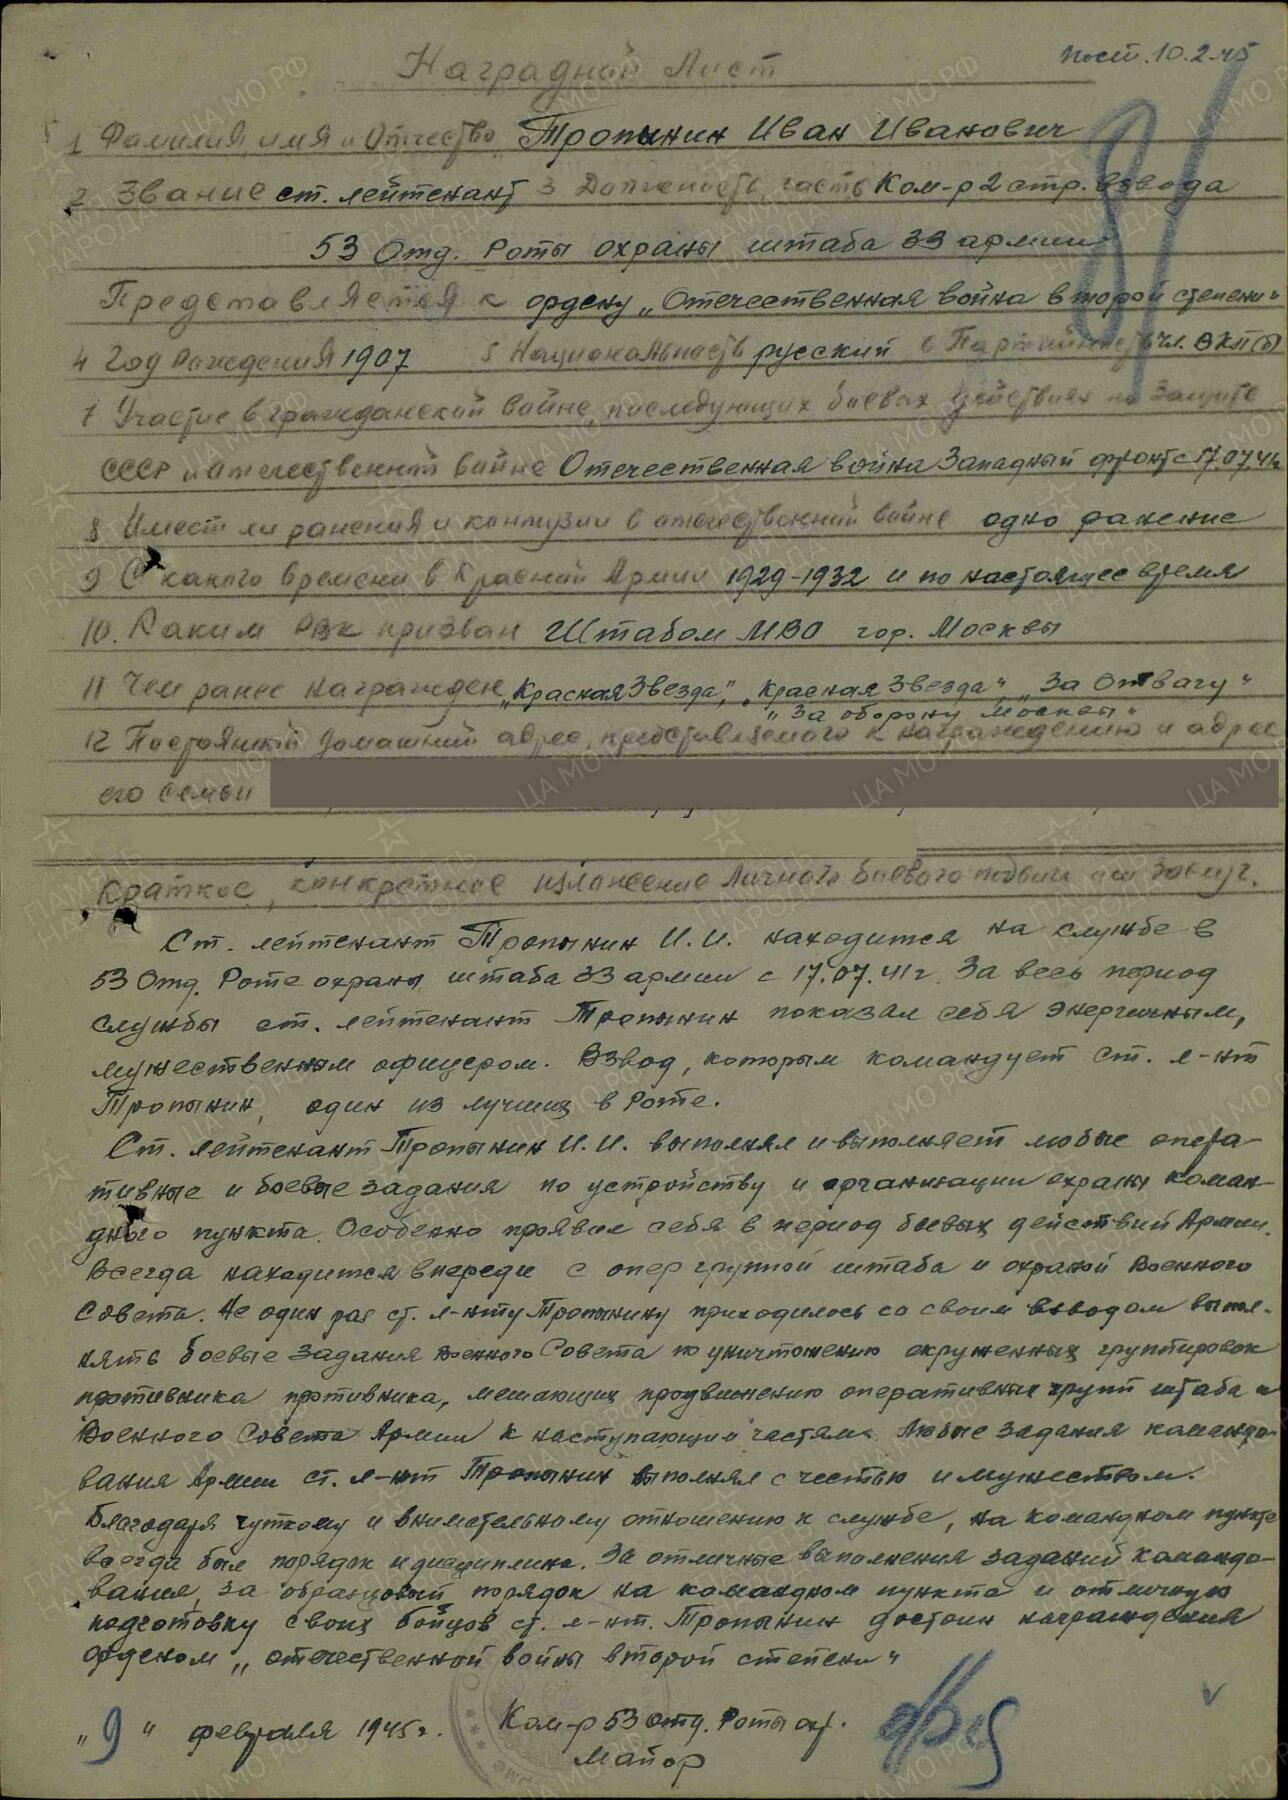 пост. 10.2.45
Наградной Лист
1 Фамилия, имя и Отчество Тропынин Иван Иванович
2 Звание ст. лейтенант 3 Должность, часть Ком-р 2 стр. взвода
53 Отд. Роты охраны штаба 33 армии
Представляется к ордену „Отечественная война второй степени"
4 Год Рождения 1907 5 Национальность русский 6 Партийность чл. ВКП(б)
7 Участие в гражданской войне, последующих боевых действиях по защите
СССР и отечественной войне Отечественная война Западный фронт с 17.07.41г
8 Имеет ли ранения и контузии в отечественной войне одно ранение
9 С какого времени в Красной Армии 1929-1932 и по настоящее время
10. Каким РВК призван Штабом МВО гор. Москвы
11 Чем ранее награжден „Красная Звезда", „Красная Звезда", „За Отвагу"
„За оборону Москвы"
12 Постоянный домашний адрес, представляемого к награждению и адрес
его семьи
Краткое, конкретное изложение личного боевого подвига или заслуг.
Ст. лейтенант Тропынин И. И. находится на службе в
53 Отд. Роте охраны штаба 33 армии с 17.07.41г. За весь период
службы ст. лейтенант Тропынин показал себя энергичным,
мужественным офицером. Взвод, которым командует ст. л-нт
Тропынин, один из лучших в Роте.
Ст. лейтенант Тропынин И. И. выполнял и выполняет любые опера-
тивные и боевые задания по устройству и организации охраны коман-
дного пункта. Особенно проявил себя в период боевых действий Армии.
Всегда находится впереди с опергруппой штаба и охраной Военного
Совета. Не один раз ст. л-нту Тропынину приходилось со своим взводом выпол-
нять боевые задания Военного Совета по уничтожению окруженных группировок
противника противника, мешающих продвижению оперативных групп штаба и
Военного Совета Армии к наступающим частям. Любые задания командо-
вания Армии ст. л-нт Тропынин выполнял с честью и мужеством.
Благодаря чуткому и внимательному отношению к службе, на командном пункте
всегда был порядок и дисциплина. За отличные выполнения заданий командо-
вания, за образцовый порядок на командном пункте и отличную
подготовку своих бойцов ст. л-нт. Тропынин достоин награждения
орденом „отечественной войны второй степени"
„9" февраля 1945г. Ком-р 53 отд. Роты охр.
Майор